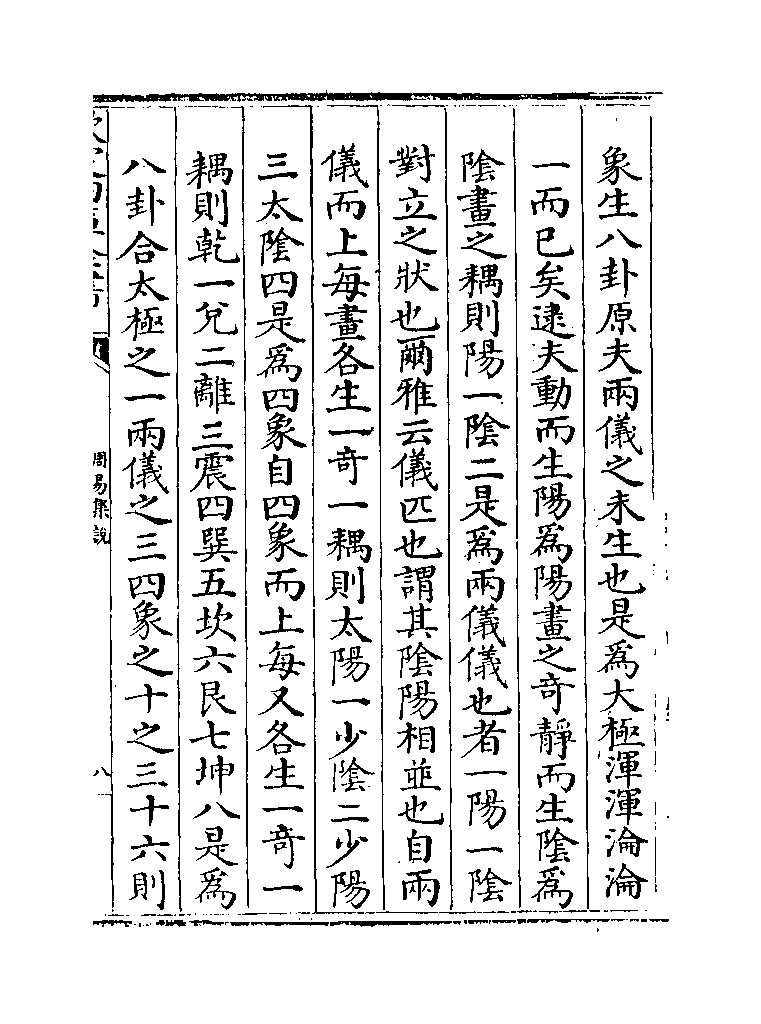 象生八卦原夫兩儀之未生也是爲大極渾渾淪淪
一而已矣逮夫動而生陽爲陽畫之奇靜而生陰爲
陰畫之耦則陽一陰二是爲兩儀儀也者一陽一陰
對立之狀也爾雅云儀匹也謂其陰陽相並也自兩
儀而上每畫各生一奇一耦則太陽一少陰二少陽
三太陰四是爲四象自四象而上每又各生一奇一
耦則乾一兌二離三震四巽五坎六艮七坤八是爲
八卦合太極之一兩儀之三四象之十之三十六則
周易集說
八